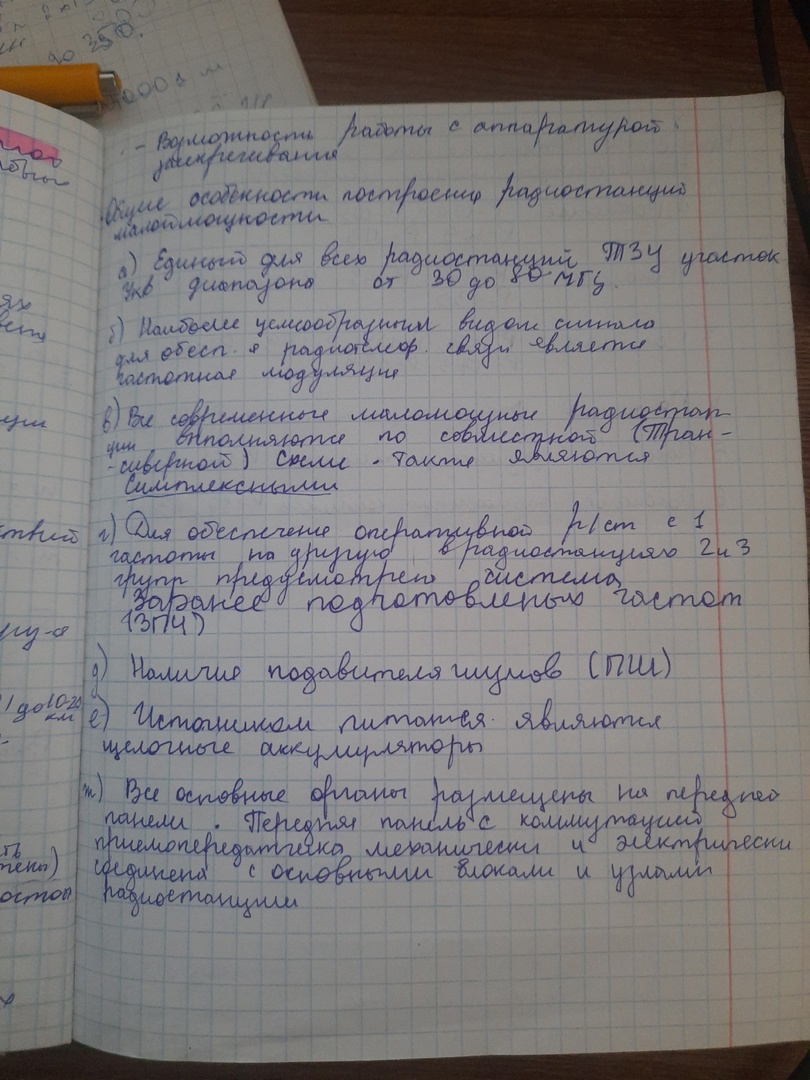 до 250.
1000 д м
- Возможность работы с аппаратурой
засекречивания
Общие особенности построения радиостанций
малой мощности
а) Единый для всех радиостанций ТЗУ участок
УКВ диапазона от 30 до 80 МГц.
б) Наиболее целесообразным видом сигнала
для обесп. я радиотелеф. связи является
частотная модуляция
в) Все современные маломощные радиостан-
ции выполняются по совместной (тран-
-сиверной) схеме. Также являются
симплексными
г) Для обеспечение оперативной р/ст с 1
частоты на другую в радиостанциях 2 и 3
групп предусмотрено система
Заранее подготовленых частот
(ЗПЧ)
д) Наличие подавителя шумов (ПШ)
е) Источником питатся. являются
щелочные аккумуляторы
ж) Все основные органы размещены на передней
панели. Передняя панель с коммутацией
приемопередатчика механически и электрически
соединена с основными блоками и узлами
радиостанции
ции
ру-я
до 10-20
км